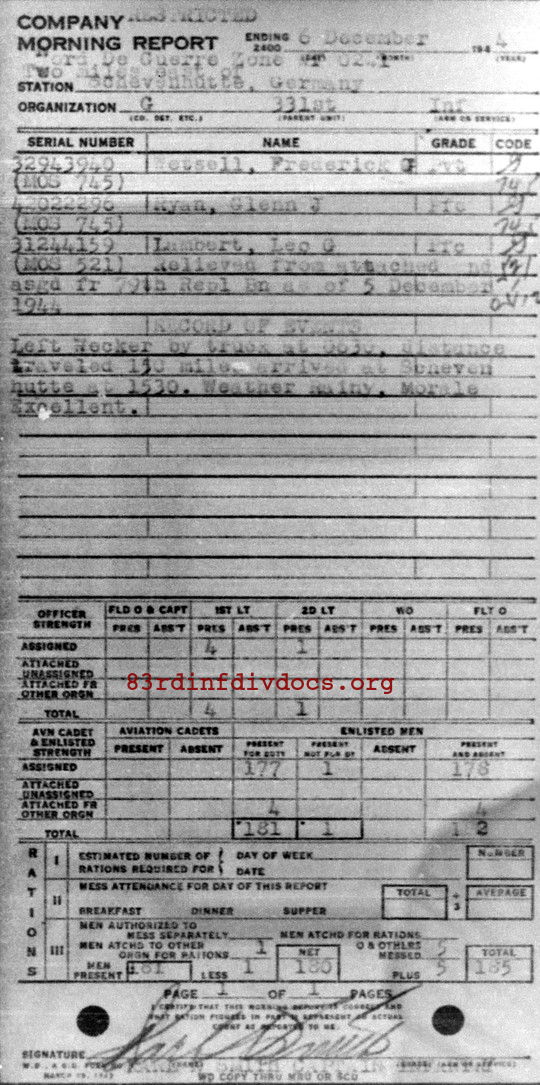 COMPANY RESTRICTED
MORNING REPORT ENDING 2400 6 December 194 4
(DAY) (MONTH) (YEAR)
Nord De Guerre Zone
Two miles east of
STATION Schevenhutte, Germany
ORGANIZATION G 331st Inf
(CO. DET. ETC.) (PARENT UNIT) (ARM OR SERVICE)
SERIAL NUMBER NAME GRADE CODE
32943940 Wetsell, Frederick Pvt
(MOS 745)
42022296 Ryan, Glenn J Pfc
(MOS 745)
31244159 Lambert, Leo G Pfc
(MOS 521) Relieved from attached nd
asgd fr 79th Repl Bn as of 5 December
1944
RECORD OF EVENTS
Left Hecker by truck at 0630, distance
traveled 150 mile, arrived at Scheven
hutte at 1530. Weather Rainy, Morale
Excellent.
OFFICER STRENGTH FLD O & CAPT 1ST LT 2D LT WO FLT O
PRES ABS'T PRES ABS'T PRES ABS'T PRES ABS'T PRES ABS'T
ASSIGNED 4 1
ATTACHED UNASSIGNED
ATTACHED FR OTHER ORGN
83rdinfdivdocs.org
TOTAL 4 1
AVN CADET & ENLISTED STRENGTH AVIATION CADETS ENLISTED MEN
PRESENT ABSENT PRESENT FOR DUTY PRESENT NOT FOR DY ABSENT PRESENT AND ABSENT
ASSIGNED 177 1 178
ATTACHED UNASSIGNED
ATTACHED FR OTHER ORGN 4 4
TOTAL 181 1 1 2
RATIONS
I ESTIMATED NUMBER OF RATIONS REQUIRED FOR DAY OF WEEK DATE NUMBER
II MESS ATTENDANCE FOR DAY OF THIS REPORT TOTAL ÷ 3 AVERAGE
BREAKFAST DINNER SUPPER
III MEN AUTHORIZED TO MESS SEPARATELY MEN ATCHD FOR RATIONS
MEN ATCHD TO OTHER ORGN FOR RATIONS 1 NET O & OTHERS MESSED 5 TOTAL
MEN PRESENT 181 LESS 1 180 PLUS 5 185
PAGE 1 OF 1 PAGES
I CERTIFY THAT THIS MORNING REPORT IS CORRECT AND
THAT RATION FIGURES IN PART III REPRESENT AN ACTUAL
COUNT AS REPORTED TO ME.
SIGNATURE
W.D., A.G.O. FORM NO (NAME) (GRADE) (ARM OR SERVICE)
MARCH
WD COPY THRU MRU OR SCU